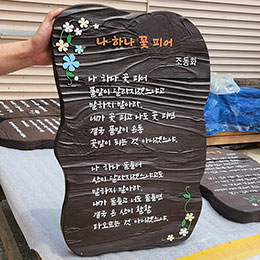 나 하나 꽃 피어
조동화
나 하나 꽃 피어
풀밭이 달라지겠느냐고
말하지 말아라.
네가 꽃 피고 나도 꽃 피면
결국 풀밭이 온통
꽃밭이 되는 것 아니겠느냐.
나 하나 물들어
산이 달라지겠느냐고도
말하지 말아라.
내가 물들고 너도 물들면
결국 온 산이 활활
타오르는 것 아니겠느냐.